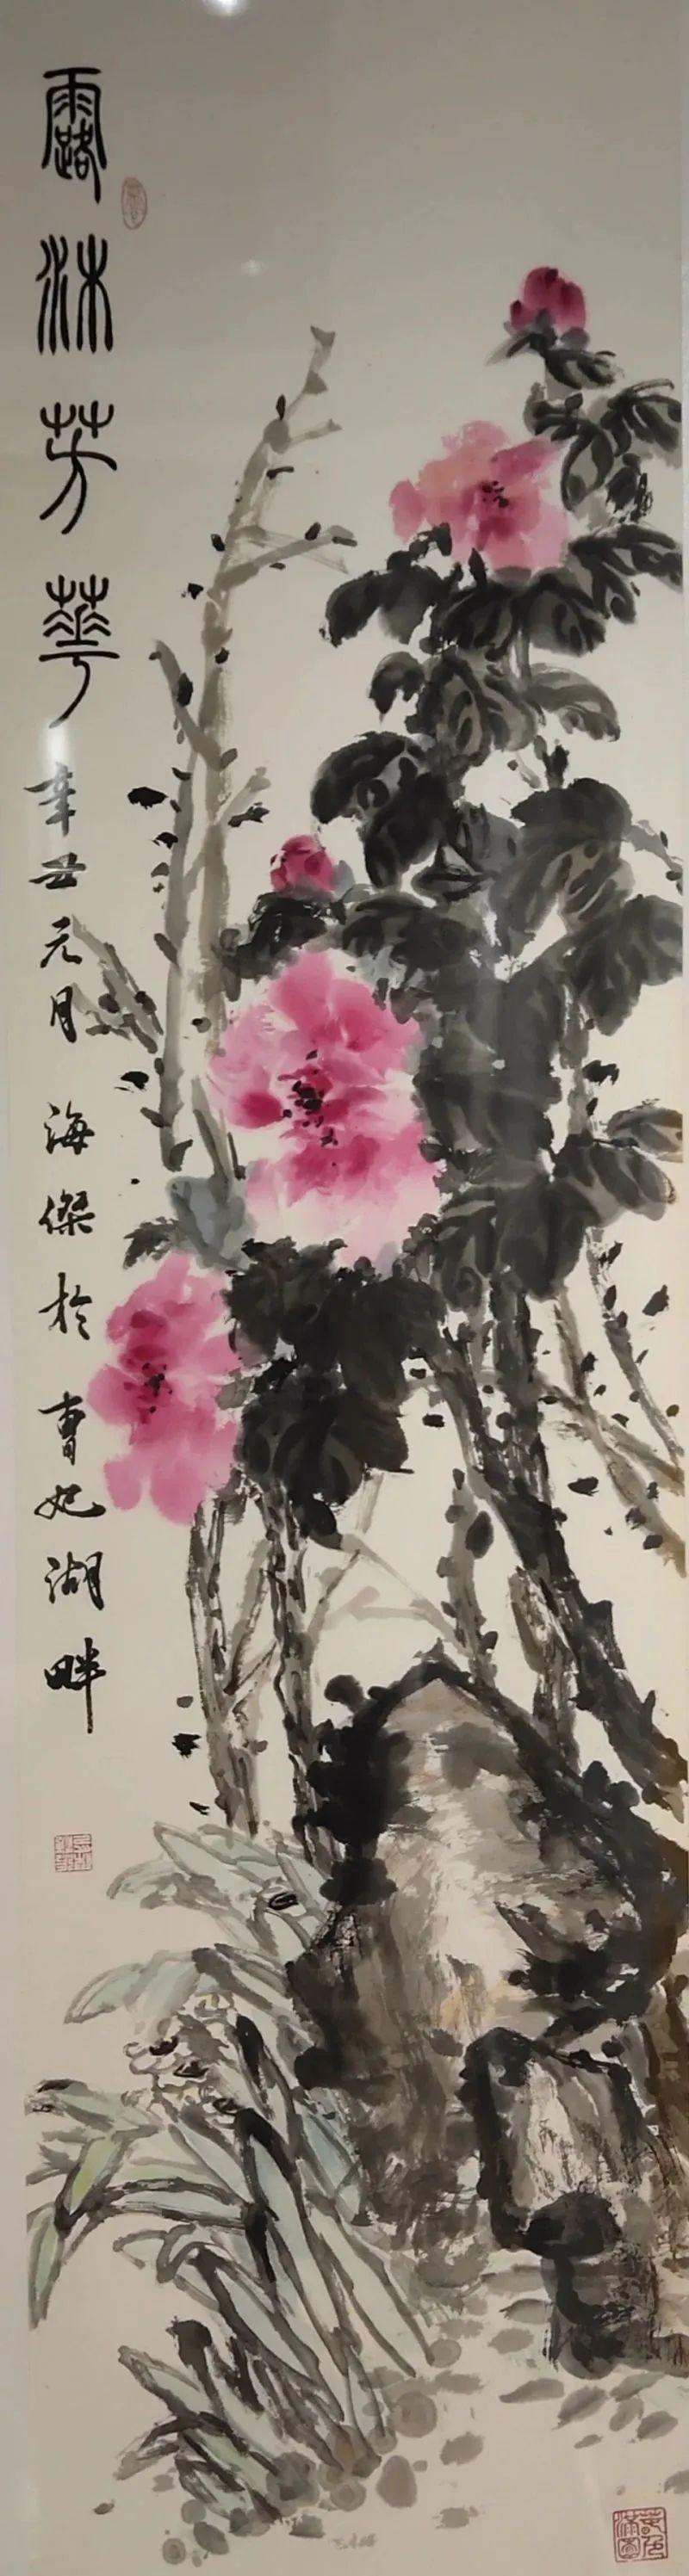 露沐芳華
辛丑元月 海傑於曹妃湖畔